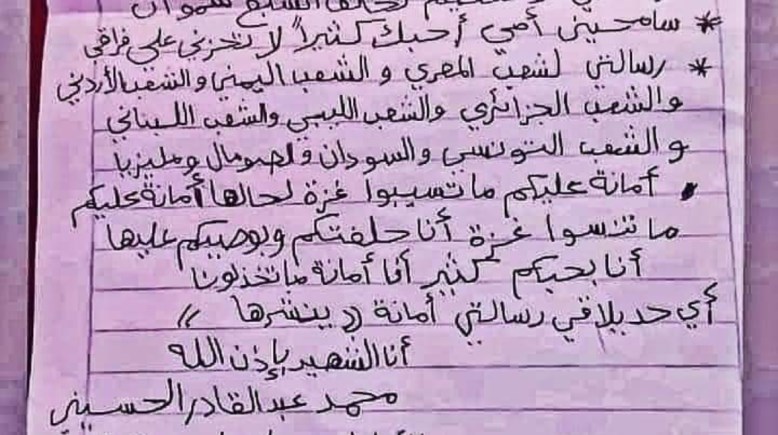 * سامحيني أمي أحبك كثيراً لا تحزني على فراقي
* رسالتي لشعب المصري و الشعب اليمني والشعب الأردني
والشعب الجزائري والشعب الليبي والشعب اللبناني
و الشعب التونسي والسودان والصومال وماليزيا
أمانة عليكم ما تسيبوا غزة لحالها أمانة عليكم
ما تنسوا غزة أنا حلفتكم وبوصيكم عليها
أنا بحبكم كثير أنا أمانة ما تخذلونا
أي حد بلاقي رسالتي أمانة (( ينشرها ))
أنا الشهيد بإذن الله
محمد عبد القادر الحسيني